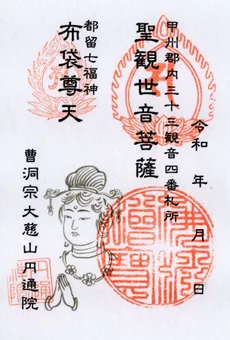 甲州郡内三十三観音四番札所
聖観世音菩薩
令和　年　月　日
都留七福神
布袋尊天
曹洞宗大慈山円通院
佛法僧寶